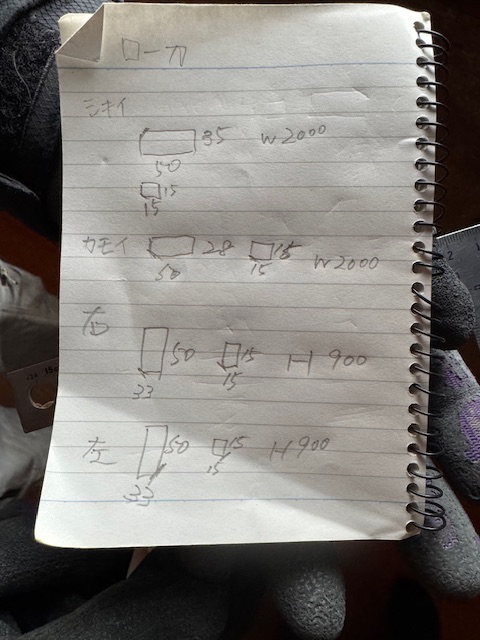 ローカ
シキイ
35 W2000
50
15
15
カモイ 28 15 W2000
50 15
右
50 15 H 900
33 15
左 50 15 H900
33 15
2